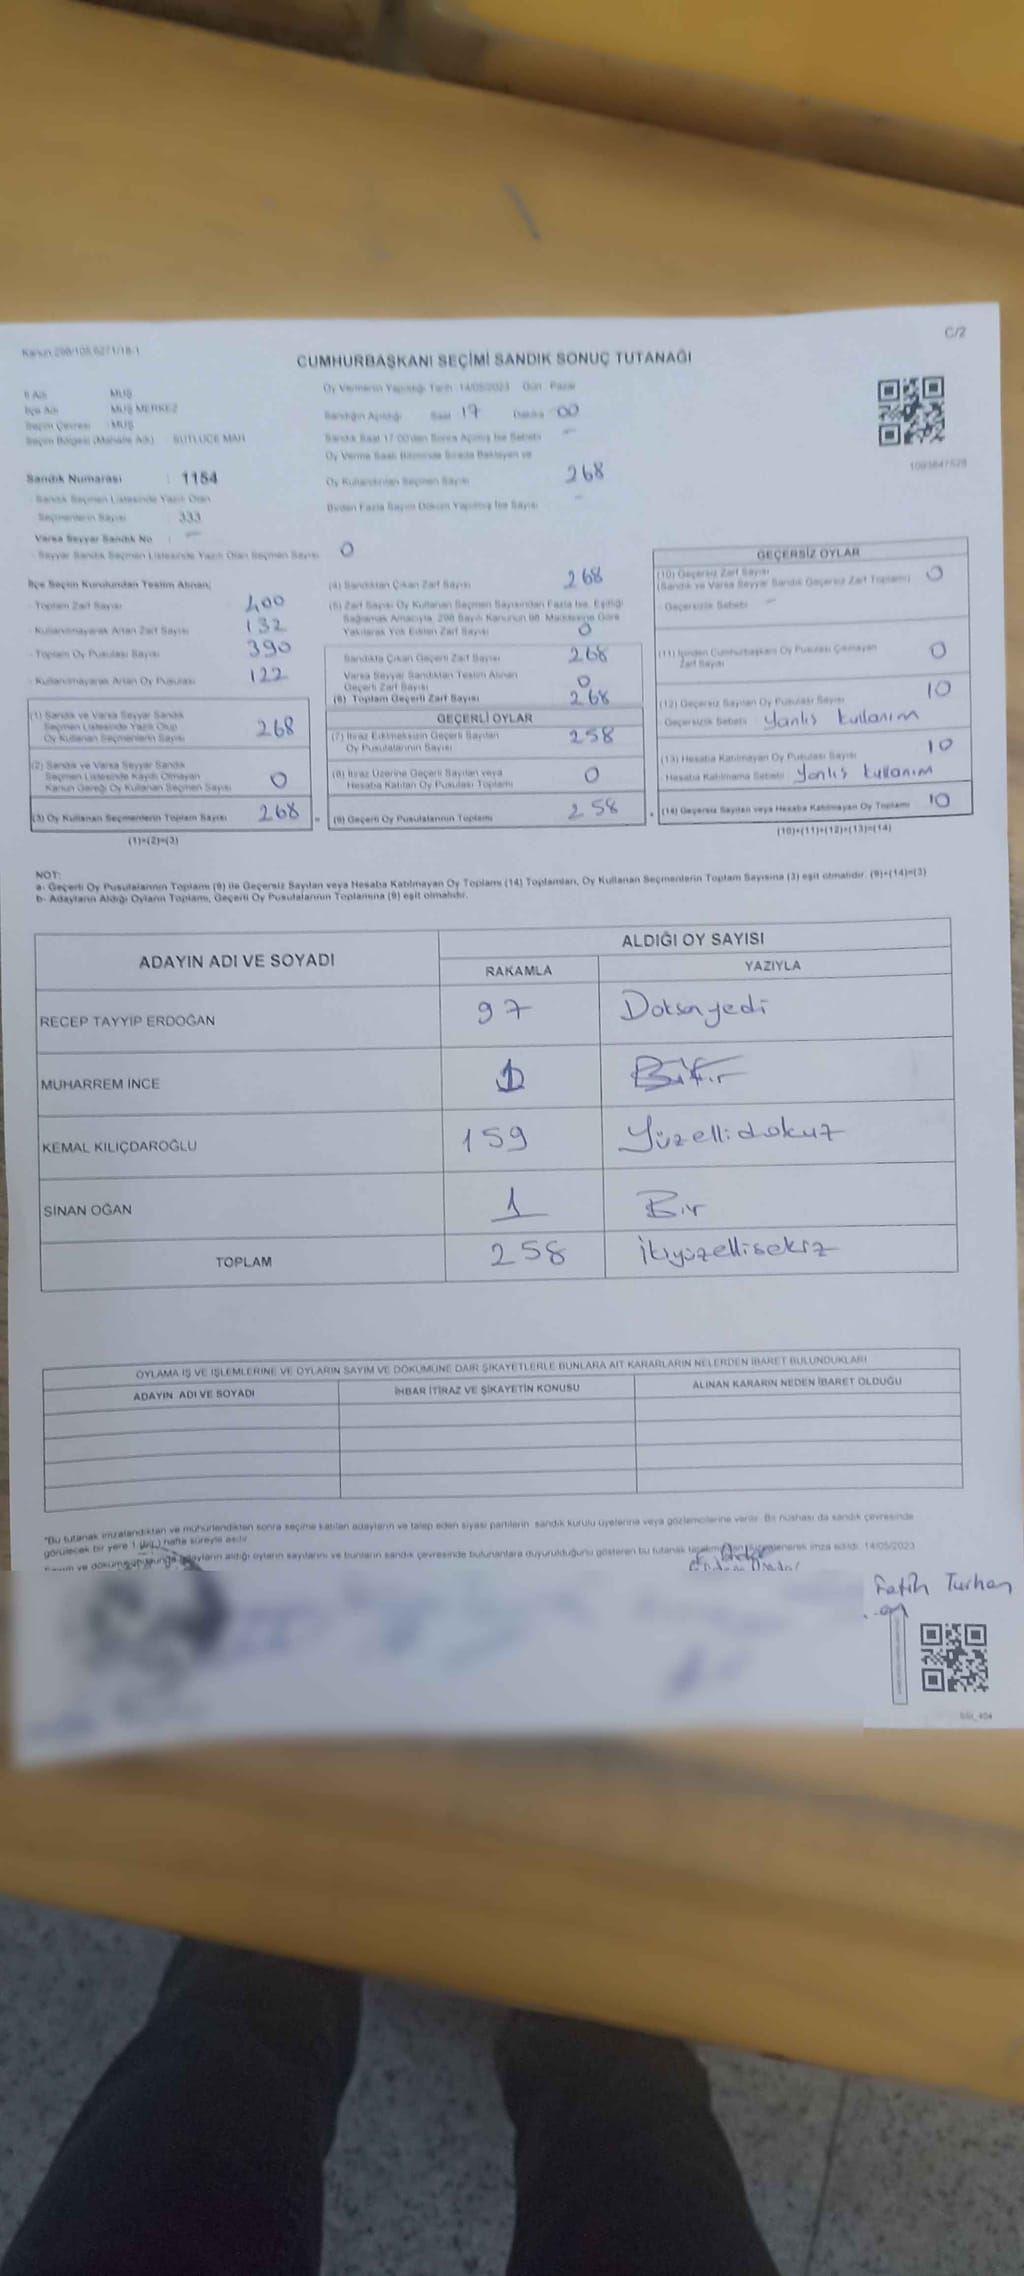 Kanun:298/105,6271/18-1
C/2
CUMHURBAŞKANI SEÇİMİ SANDIK SONUÇ TUTANAĞI
İl Adı : MUŞ
İlçe Adı : MUŞ MERKEZ
Seçim Çevresi : MUŞ
Seçim Bölgesi (Mahalle Adı) : SUTLUCE MAH
Oy Vermenin Yapıldığı Tarih: 14/05/2023 Gün: Pazar
Sandığın Açıldığı Saat 17 Dakika 00
Sandık Saat 17:00'den Sonra Açılmış İse Sebebi —
Oy Verme Saati Bitiminde Sırada Bekleyen ve
Oy Kullandırılan Seçmen Sayısı 268
Birden Fazla Sayım Döküm Yapılmış İse Sayısı —
Sandık Numarası : 1154
- Sandık Seçmen Listesinde Yazılı Olan
Seçmenlerin Sayısı : 333
Varsa Seyyar Sandık No : —
- Seyyar Sandık Seçmen Listesinde Yazılı Olan Seçmen Sayısı 0
İlçe Seçim Kurulundan Teslim Alınan;
- Toplam Zarf Sayısı 400
- Kullanılmayarak Artan Zarf Sayısı 132
- Toplam Oy Pusulası Sayısı 390
- Kullanılmayarak Artan Oy Pusulası 122
(1) Sandık ve Varsa Seyyar Sandık
Seçmen Listesinde Yazılı Olup
Oy Kullanan Seçmenlerin Sayısı 268
(2) Sandık ve Varsa Seyyar Sandık
Seçmen Listesinde Kayıtlı Olmayan
Kanun Gereği Oy Kullanan Seçmen Sayısı 0
(3) Oy Kullanan Seçmenlerin Toplam Sayısı 268
(1)+(2)=(3)
(4) Sandıktan Çıkan Zarf Sayısı 268
(5) Zarf Sayısı Oy Kullanan Seçmen Sayısından Fazla İse, Eşitliği
Sağlamak Amacıyla, 298 Sayılı Kanunun 98. Maddesine Göre
Yakılarak Yok Edilen Zarf Sayısı 0
Sandıkta Çıkan Geçerli Zarf Sayısı 268
Varsa Seyyar Sandıktan Teslim Alınan
Geçerli Zarf Sayısı 0
(6) Toplam Geçerli Zarf Sayısı 268
GEÇERLİ OYLAR
(7) İtiraz Edilmeksizin Geçerli Sayılan
Oy Pusulalarının Sayısı 258
(8) İtiraz Üzerine Geçerli Sayılan veya
Hesaba Katılan Oy Pusulası Toplamı 0
(9) Geçerli Oy Pusulalarının Toplamı 258
GEÇERSİZ OYLAR
(10) Geçersiz Zarf Sayısı 0
(Sandık ve Varsa Seyyar Sandık Geçersiz Zarf Toplamı)
- Geçersizlik Sebebi —
(11) İçinden Cumhurbaşkanı Oy Pusulası Çıkmayan
Zarf Sayısı 0
(12) Geçersiz Sayılan Oy Pusulası Sayısı 10
- Geçersizlik Sebebi Yanlış kullanım
(13) Hesaba Katılmayan Oy Pusulası Sayısı 10
Hesaba Katılmama Sebebi Yanlış kullanım
(14) Geçersiz Sayılan veya Hesaba Katılmayan Oy Toplamı 10
(10)+(11)+(12)+(13)=(14)
NOT:
a- Geçerli Oy Pusulalarının Toplamı (9) ile Geçersiz Sayılan veya Hesaba Katılmayan Oy Toplamı (14) Toplamları, Oy Kullanan Seçmenlerin Toplam Sayısına (3) eşit olmalıdır. (9)+(14)=(3)
b- Adayların Aldığı Oyların Toplamı, Geçerli Oy Pusulalarının Toplamına (9) eşit olmalıdır.
ADAYIN ADI VE SOYADI ALDIĞI OY SAYISI
RAKAMLA YAZIYLA
RECEP TAYYİP ERDOĞAN 97 Doksanyedi
MUHARREM İNCE 1 Bir
KEMAL KILIÇDAROĞLU 159 Yüzellidokuz
SİNAN OĞAN 1 Bir
TOPLAM 258 İkiyüzellisekiz
OYLAMA İŞ VE İŞLEMLERİNE VE OYLARIN SAYIM VE DÖKÜMÜNE DAİR ŞİKAYETLERLE BUNLARA AİT KARARLARIN NELERDEN İBARET BULUNDUKLARI
ADAYIN ADI VE SOYADI İHBAR İTİRAZ VE ŞİKAYETİN KONUSU ALINAN KARARIN NEDEN İBARET OLDUĞU
"Bu tutanak imzalandıktan ve mühürlendikten sonra seçime katılan adayların ve talep eden siyasi partilerin sandık kurulu üyelerine veya gözlemcilerine verilir. Bir nüshası da sandık çevresinde
görülecek bir yere 1 (bir) hafta süreyle asılır.
Sayım ve dökümü adayların aldığı oyların sayılarını ve bunların sandık çevresinde bulunanlara duyurulduğunu gösteren bu tutanak imza edildi. 14/05/2023
Fatih Turhan